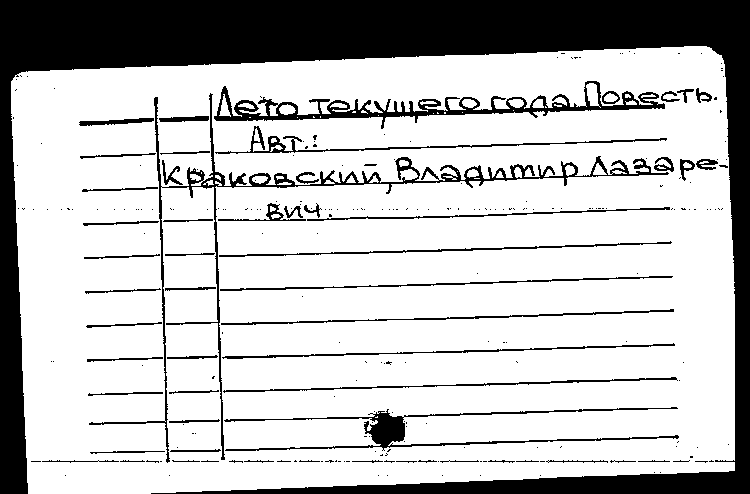 Лето текущего года. Повесть.
Авт.:
Краковский, Владимир Лазаре-
вич.